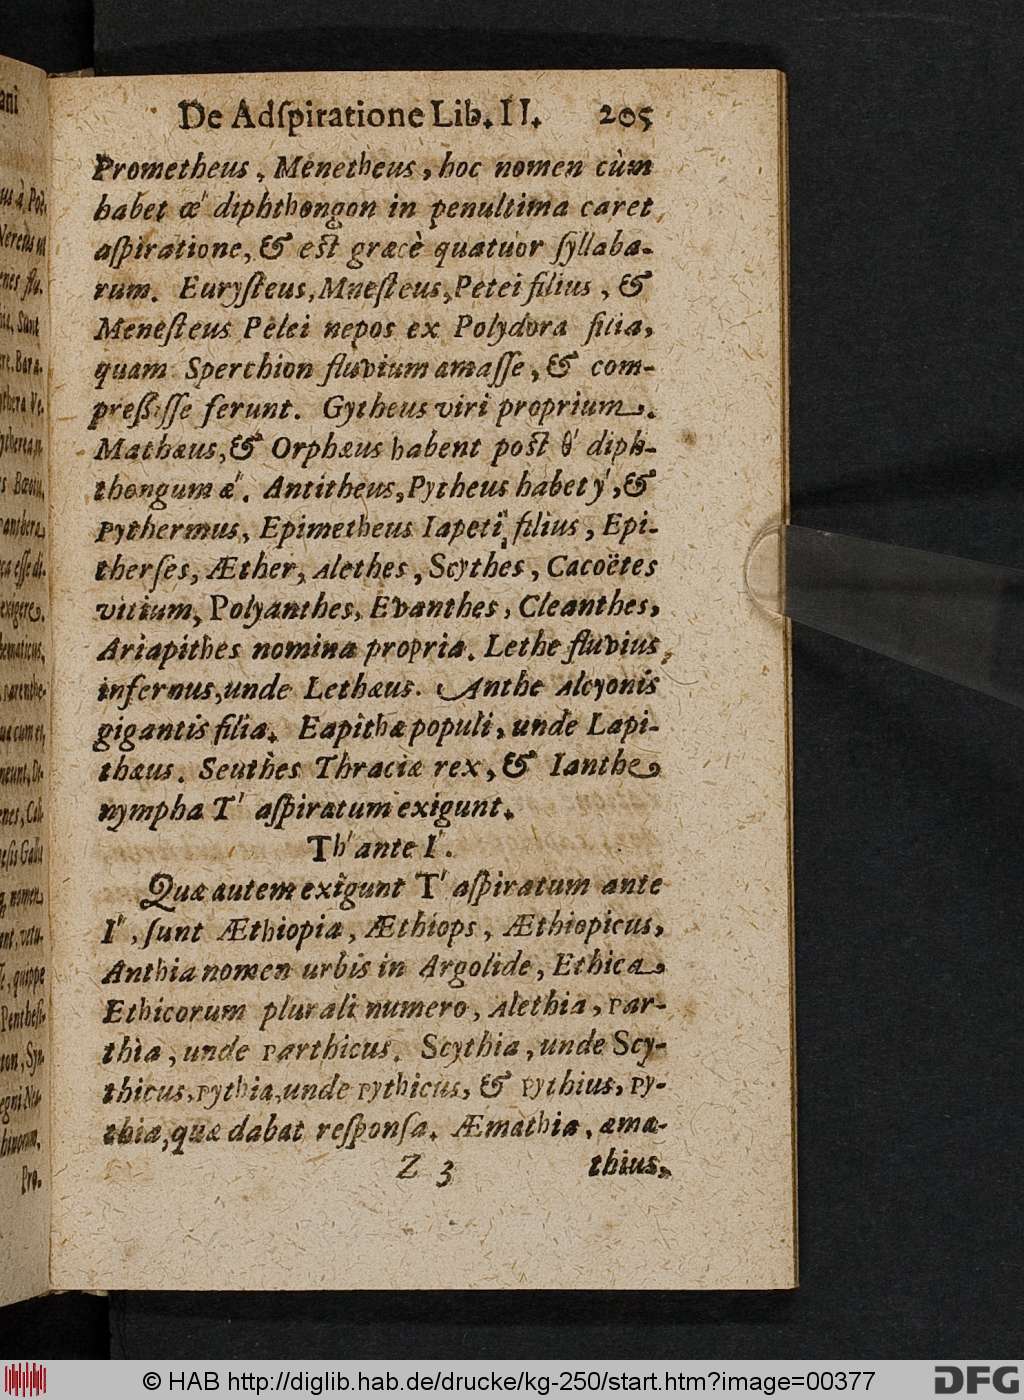 De Adſpiratione Lib. II. 205
Prometheus, Menetheus, hoc nomen cùm
habet œ'' diphthongon in penultima caret
aſpiratione, & est græcè quatuor ſyllaba-
rum. Euryſteus, Mneſteus, Petei filius, &
Meneſteus Pelei nepos ex Polydora filia,
quam Sperchion fluvium amaſſe, & com-
preſsiſſe ferunt. Gytheus viri proprium.
Mathæus, & Orphæus habent post θ' diph-
thongum æ'. Antitheus, Pytheus habet ý, &
Pythermus, Epimetheus Iapetï filius, Epi-
therſes, Æther, Alethes, Scythes, Cacoëtes
vitium, Polyanthes, Evanthes, Cleanthes,
Ariapithes nomina propria. Lethe fluvius
infernus, unde Lethæus. Anthe Alcyonis
gigantis filia. Eapithæ populi, unde Lapi-
thæus. Seuthes Thraciæ rex, & Ianthe
nympha T' aſpiratum exigunt.
Th' ante I'.
Quæ autem exigunt T' aſpiratum ante
I'', ſunt Æthiopia, Æthiops, Æthiopicus,
Anthia nomen urbis in Argolide, Ethica,
Ethicorum plurali numero, Alethia, Par-
thia, unde Parthicus. Scythia, unde Scy-
thicus, Pythia, unde Pythicus, & Pythius, Py-
thia, quæ dabat reſponſa. Æmathia, æma-
Z 3 thius,
© HAB http://diglib.hab.de/drucke/kg-250/start.htm?image=00377
DFG